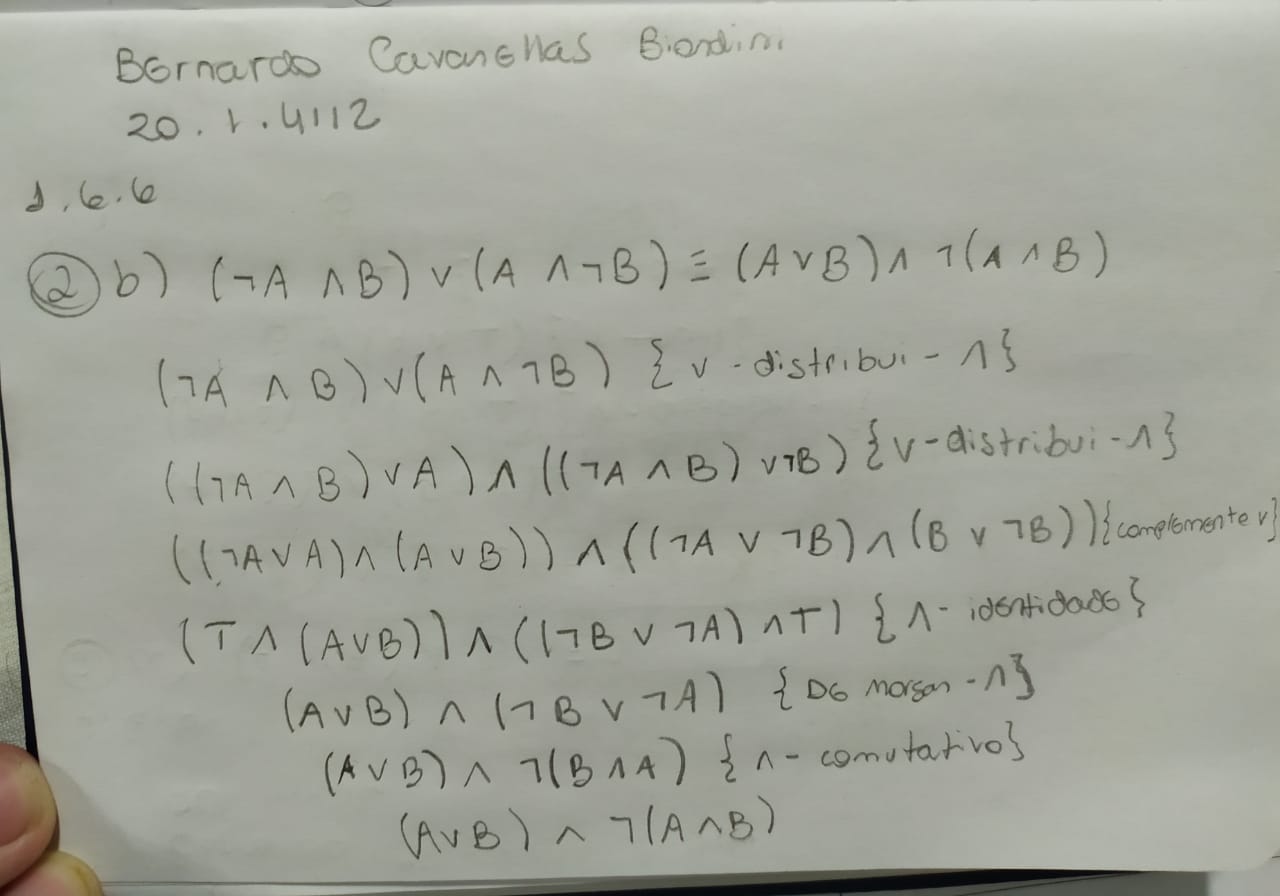 Bernardo Cavanellas Biondini
20.1.4112
1.6.6
② b) (¬A ∧ B) ∨ (A ∧ ¬B) ≡ (A ∨ B) ∧ ¬(A ∧ B)
(¬A ∧ B) ∨ (A ∧ ¬B) {∨-distribui-∧}
((¬A ∧ B) ∨ A) ∧ ((¬A ∧ B) ∨ ¬B) {∨-distribui-∧}
((¬A ∨ A) ∧ (A ∨ B)) ∧ ((¬A ∨ ¬B) ∧ (B ∨ ¬B)) {complemente ∨}
(T ∧ (A ∨ B)) ∧ ((¬B ∨ ¬A) ∧ T) {∧-identidade}
(A ∨ B) ∧ (¬B ∨ ¬A) {De Morgan-∧}
(A ∨ B) ∧ ¬(B ∧ A) {∧-comutativo}
(A ∨ B) ∧ ¬(A ∧ B)